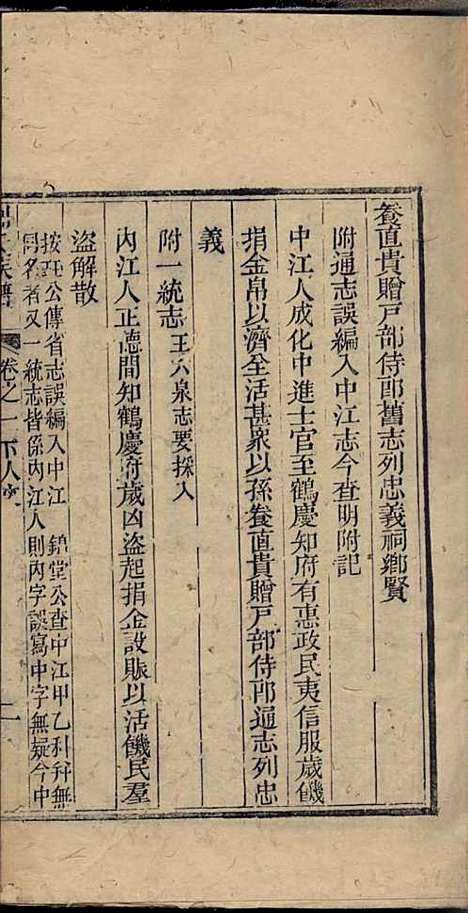 養直貴贈戶部侍郎舊志列忠義祠鄉賢
附通志誤編入中江志今查明附記
中江人成化中進士官至鶴慶知府有惠政民夷信服歲饑
捐金帛以濟全活甚衆以孫養直貴贈戶部侍郎通志列忠
義
附一統志王六泉志要採入
內江人正德間知鶴慶府歲凶盜起捐金設賑以活饑民羣
盜解散
按公傳省志誤編入中江 錦堂公查中江甲乙科幷無
同名者又一統志皆係內江人則內字誤寫中字無疑今中
卷之一 下人 二